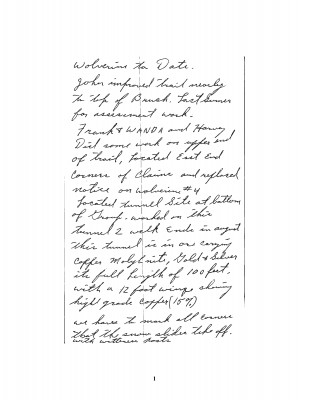 Wolverine to Date.
John improved trail nearly
to top of Brush. Last Summer
for assessment work.
Frank & WANDA and Harvey
Did some work on upper end
of trail, Located East End
corners of Claims and replaced
notice on Wolverine #4
Located tunnel Site at bottom
of Group. worked on this
tunnel 2 week Ends in august
this tunnel is in ore carrying
copper Molybnite, Gold & Silver
its full Length of 100 feet.
with a 12 foot winze showing
high grade Copper (15%)
we have to mark all corners
that the snow slides take off.
with witness posts
1